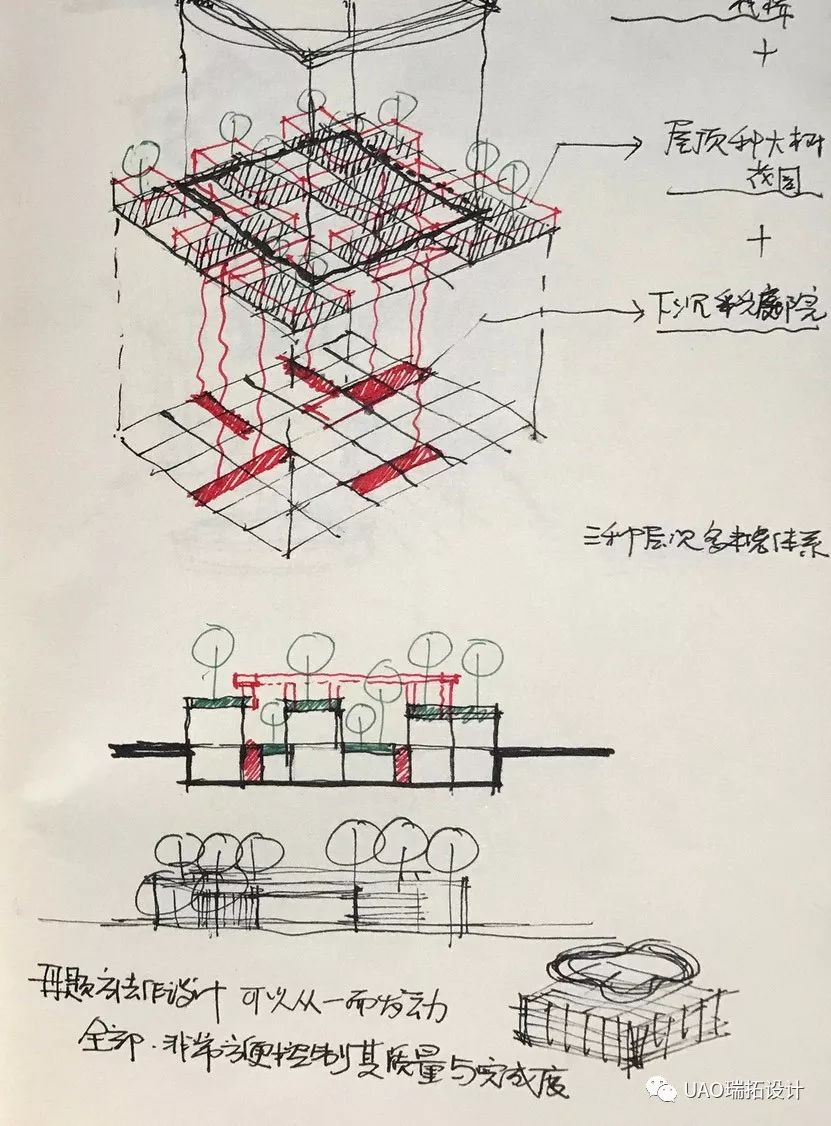 +
屋顶种大树
花园
+
下沉庭院
三种层次体系
母题方法作设计 可以从一而发动
全部.非常方便控制其质量与完成度
UAO瑞拓设计